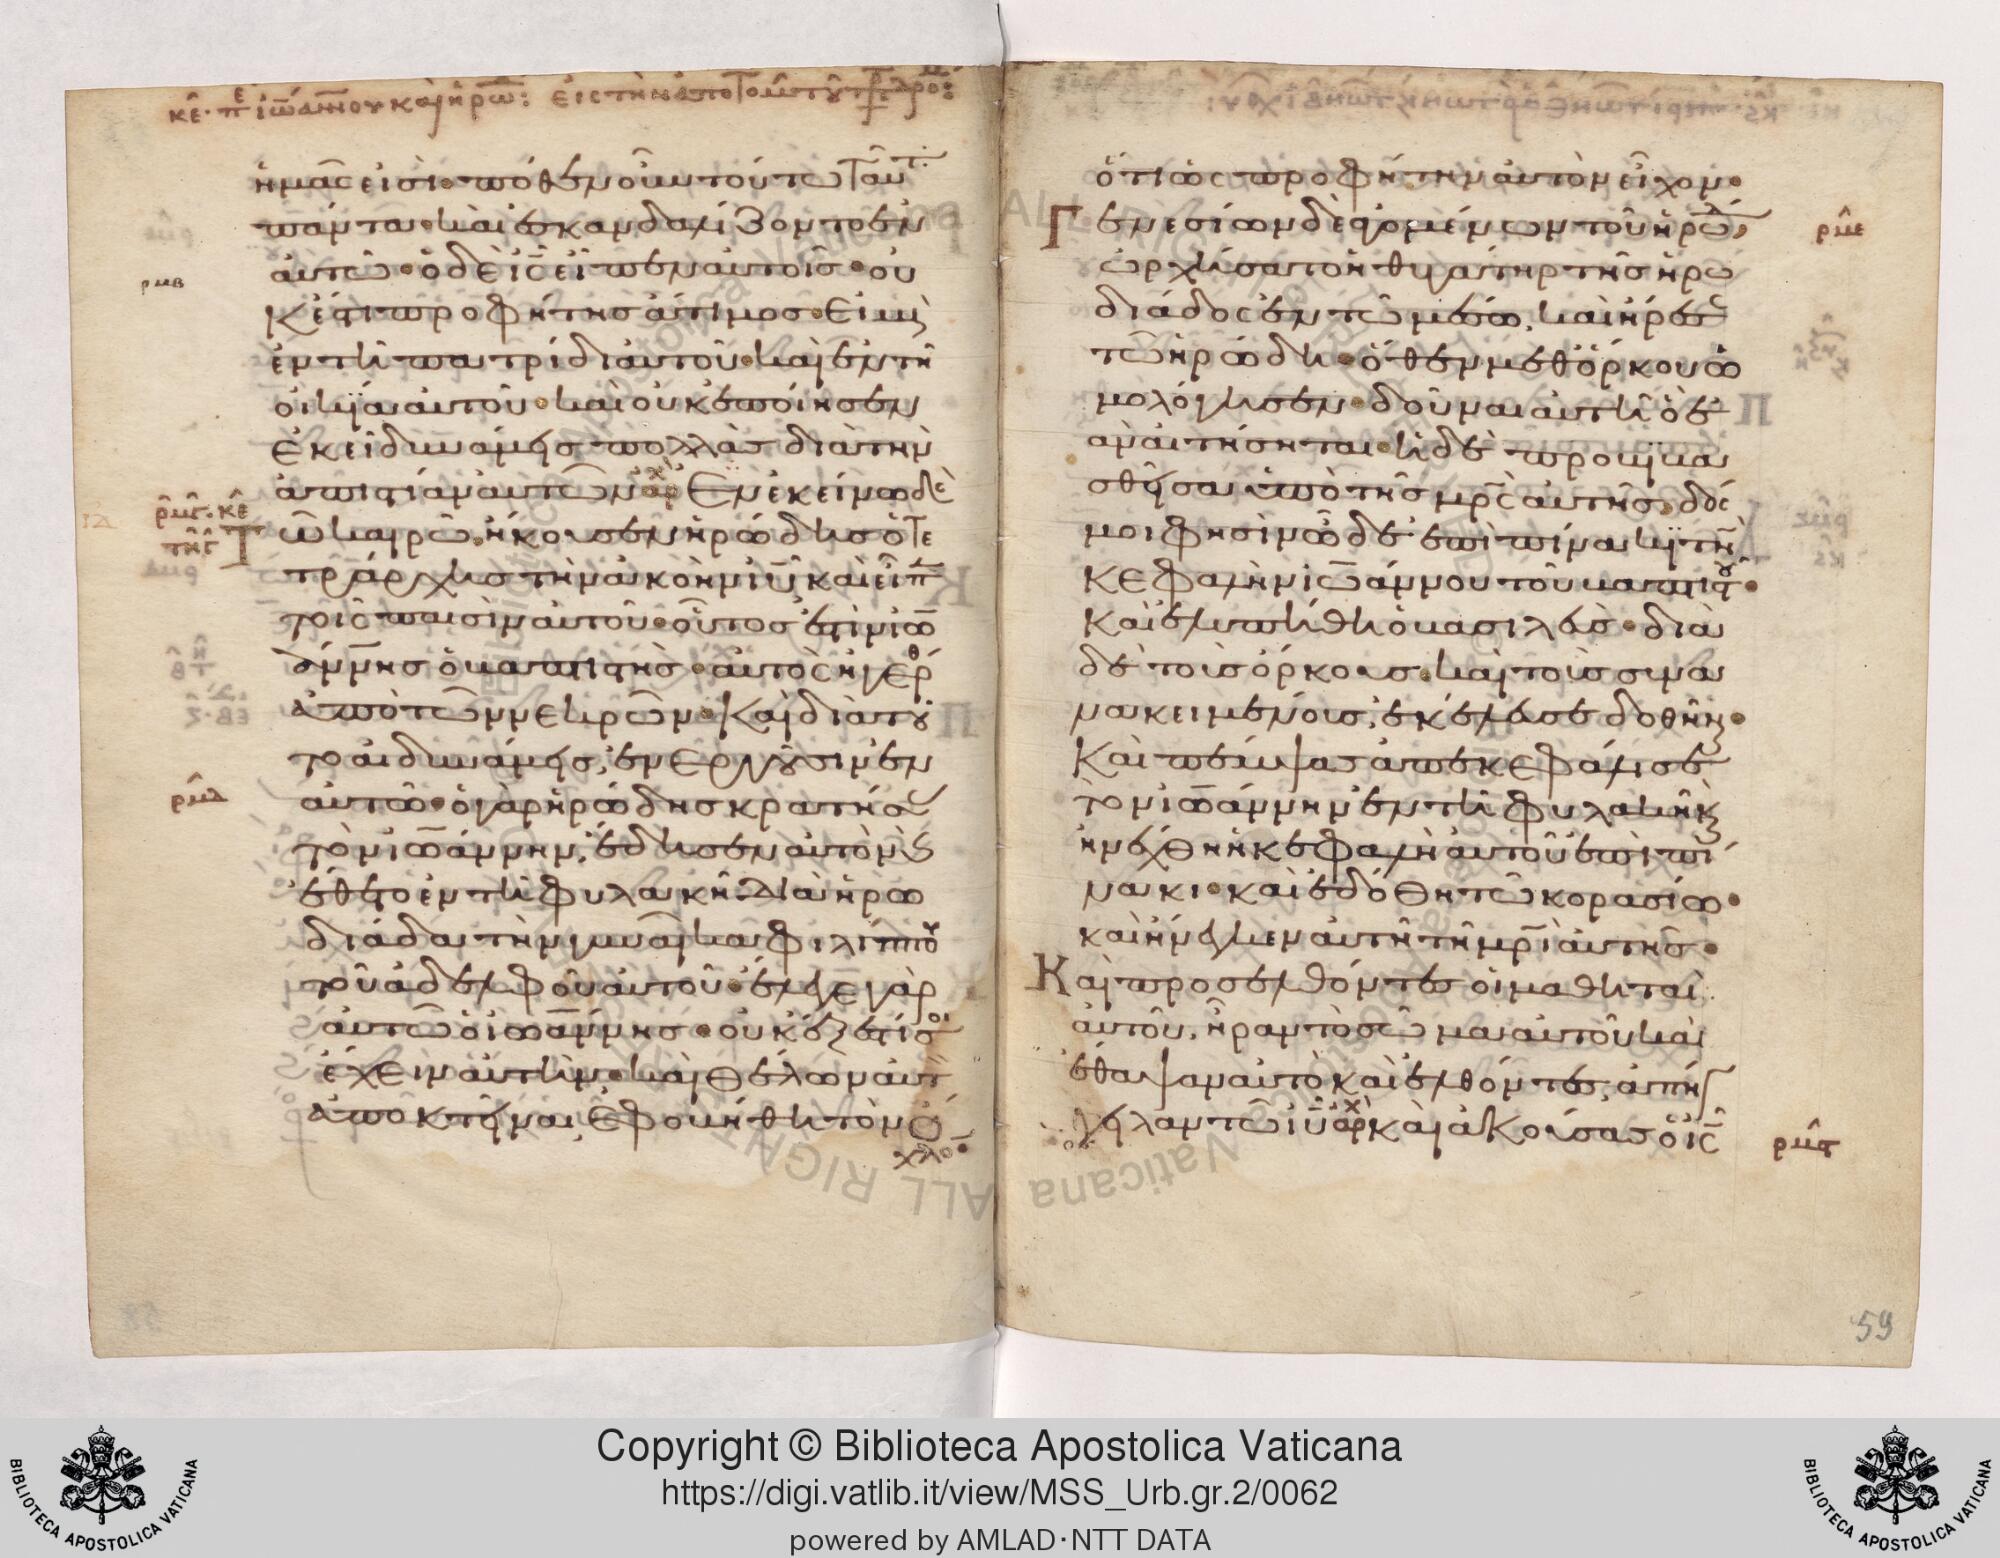 κε· πε ἰωάννου καὶ ἡρω: εἰς τὴν ἀποτομ τοῦ πρ
ἡμᾶς εἰσί· πόθεν οὖν τούτω ταυτ
πάντα· καὶ ἐσκανδαλίζοντο ἐν
αὐτῶ· ὁ δὲ ι̅ς̅ εἶπεν αὐτοῖς· οὐ
κ ἔστι προφήτης ἄτιμος· εἰ μὴ
ἐν τῆ πατρίδι αὐτοῦ· καὶ ἐν τῆ
οἰκία αὐτοῦ· καὶ οὐκ ἐποίησεν
ἐκεῖ δυνάμεις πολλὰς διὰ τὴν
ἀπιστίαν αὐτῶν· ἀρχ Ἐν ἐκείνω δὲ
ρμγ· κε
τῆς
Τῶ καιρῶ, ἤκουσεν ἡρώδης ὁ τε
τράρχης τὴν ἀκοὴν ι̅υ̅ καὶ εἶπ
τοῖς παισὶν αὐτοῦ· οὗτος ἐστὶν ἰω
άννης ὁ βαπτιστής· αὐτὸς ἠγέρθ
ἀπὸ τῶν νεκρῶν· Καὶ διὰ τοῦ
το αἱ δυνάμεις, ἐνεργοῦσιν ἐν
ρμδ
αὐτῶ· ὁ γὰρ ἡρώδης κρατήσας
τὸν ἰωάννην, ἔδησεν αὐτὸν κ
ἔθετο ἐν τῆ φυλακῆ· διὰ ἡρω
διάδα τὴν γυναῖκα φιλίππου
τοῦ ἀδελφοῦ αὐτοῦ· ἔλεγε γὰρ
αὐτῶ ὁ ἰωάννης· οὐκ ἔξεστί σοι
ἔχειν αὐτήν· καὶ θέλων αὐτ
ἀποκτεῖναι, ἐφοβήθη τὸν ὄ
χλο
ὅτι ὡς προφήτην αὐτὸν εἶχον·
Γενεσίων δὲ ἀγομένων τοῦ ἡρώδ
ρμε
ὠρχήσατο ἡ θυγάτηρ τῆς ἡρω
διάδος ἐν τῶ μέσω, καὶ ἤρεσε
τῶ ἡρώδη· ὅθεν μεθ ὅρκου ὡ
μολόγησεν· δοῦναι αὐτῆ ὃ ἐ
ὰν αἰτήσηται· ἡ δὲ προβιβα
σθεῖσα ὑπὸ τῆς μ̅ρ̅ς̅ αὐτῆς· δός
μοι φησὶν ὧδε ἐπὶ πίνακι τὴν
κεφαλὴν ἰωάννου τοῦ βαπτιστοῦ·
Καὶ ἐλυπήθη ὁ βασιλεὺς· διὰ
δὲ τοὺς ὅρκους· καὶ τοὺς συνα
νακειμένους, ἐκέλευσε δοθῆναι·
Καὶ πέμψας ἀπεκεφάλισε
τὸν ἰωάννην ἐν τῆ φυλακῆ κ
ἠνέχθη ἡ κεφαλὴ αὐτοῦ ἐπὶ πί
νακι· καὶ ἐδόθη τῶ κορασίω·
καὶ ἤνεγκεν αὐτὴ τῆ μ̅ρ̅ι̅ αὐτῆς·
Καὶ προσελθόντες οἱ μαθηταὶ
αὐτοῦ, ἦραν τὸ σῶμα αὐτοῦ καὶ
ἔθαψαν αὐτὸ καὶ ἐλθόντες, ἀπήγ
γειλαν τῶ ι̅υ̅ ἀρχ καὶ ἀκούσας ὁ ι̅ς̅
ρμϛ
59
Copyright © Biblioteca Apostolica Vaticana
https://digi.vatlib.it/view/MSS_Urb.gr.2/0062
powered by AMLAD·NTT DATA
BIBLIOTECA APOSTOLICA VATICANA
BIBLIOTECA APOSTOLICA VATICANA